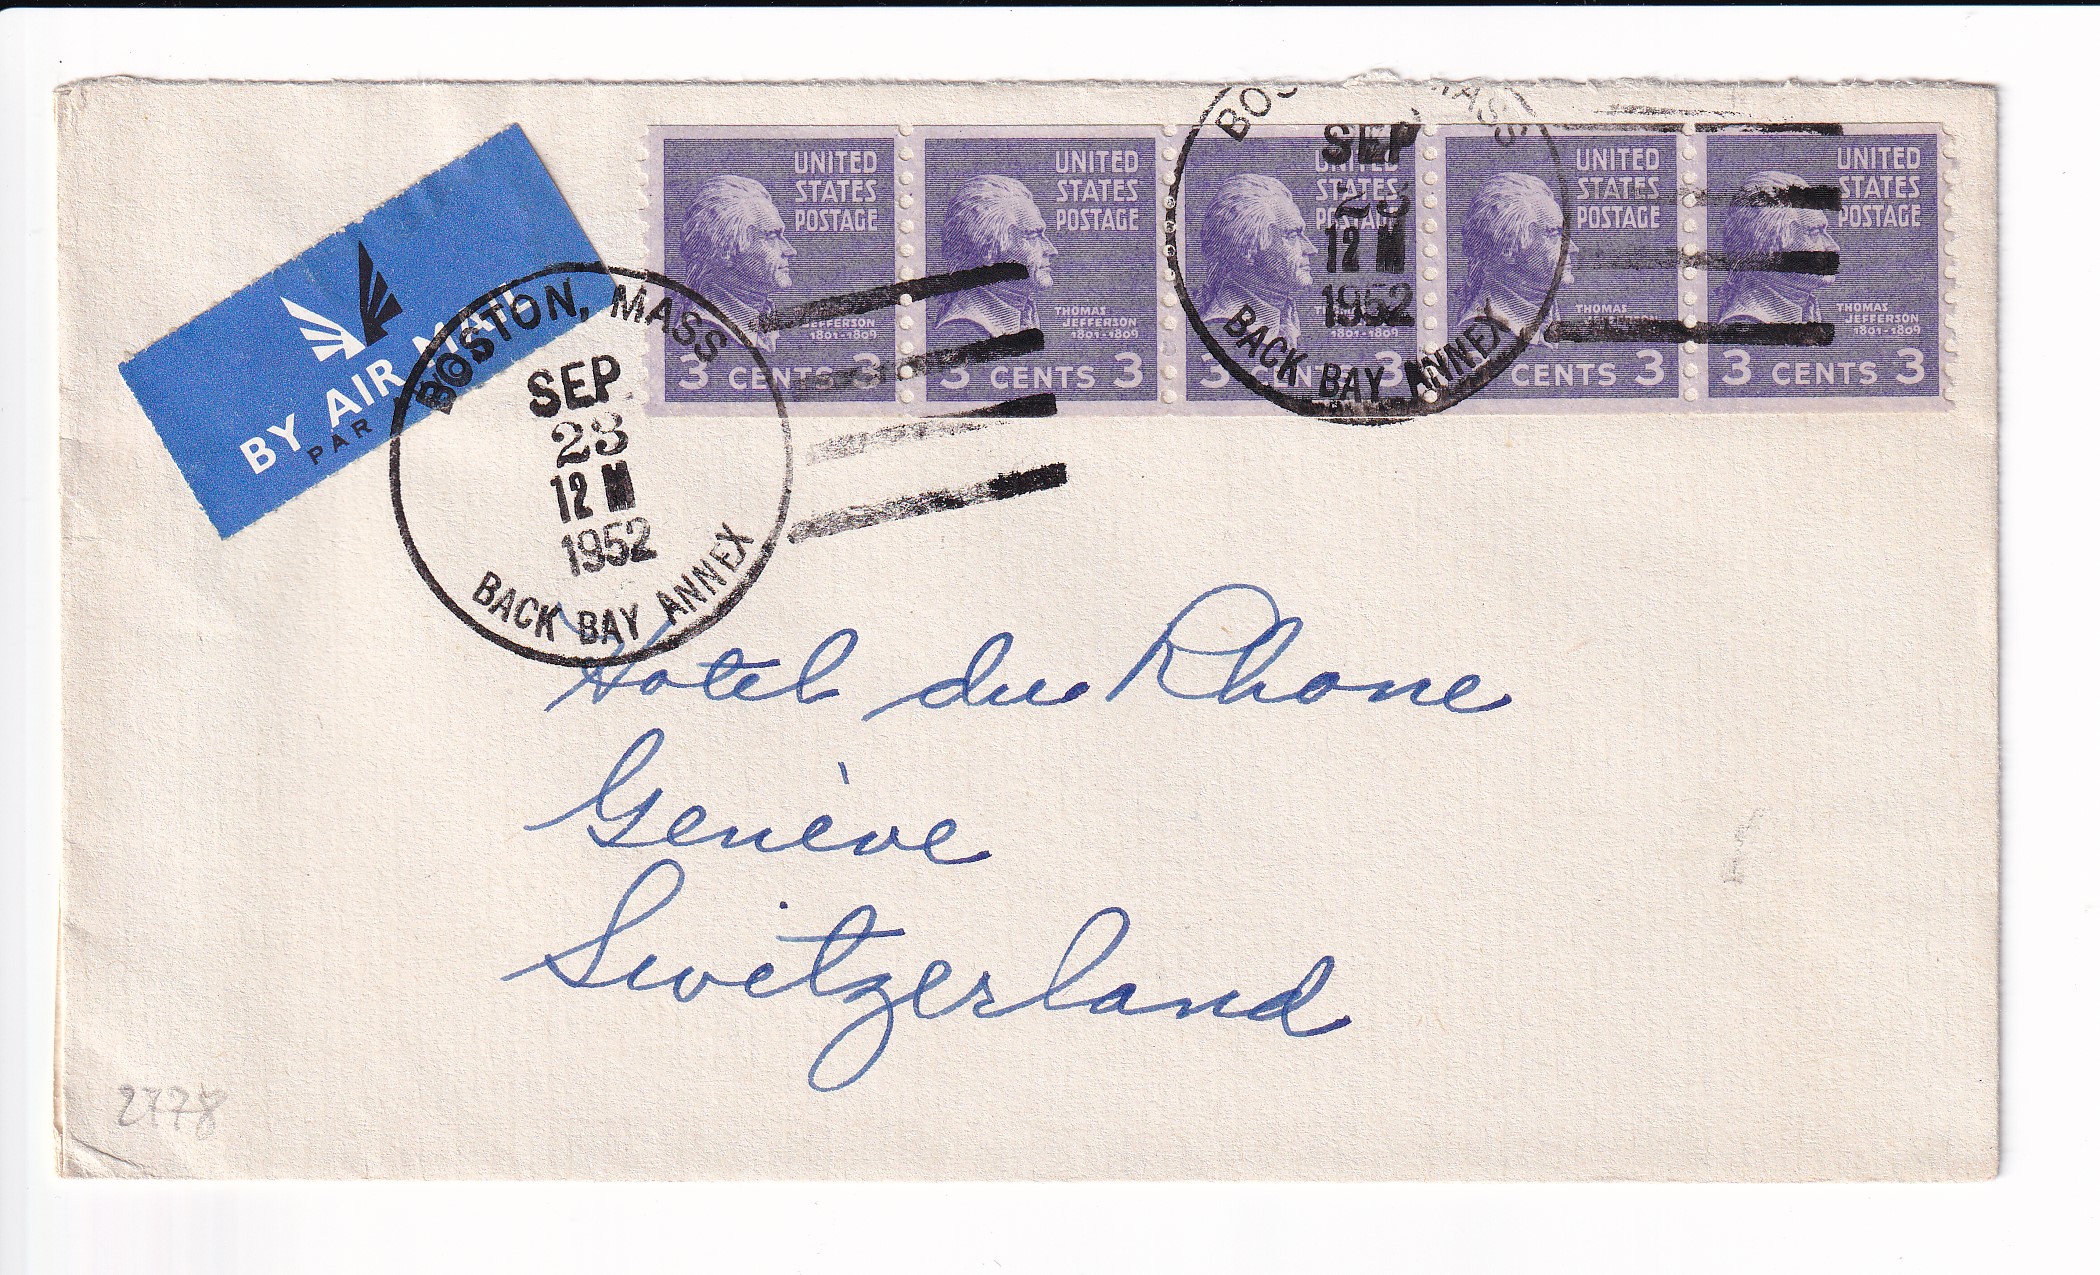 BY AIR MAIL
PAR
BOSTON, MASS
SEP
23
12 M
1952
BACK BAY ANNEX
UNITED
STATES
POSTAGE
JEFFERSON
1801-1809
3 CENTS 3
UNITED
STATES
POSTAGE
THOMAS
JEFFERSON
1801-1809
3 CENTS 3
UNITED
STATES
POSTAGE
1801-1809
3 CENTS 3
MASS
SEP
23
12 M
1952
BACK BAY ANNEX
UNITED
STATES
POSTAGE
THOMAS
CENTS 3
UNITED
STATES
POSTAGE
THOMAS
JEFFERSON
1801-1809
3 CENTS 3
Hotel du Rhone
Genève
Switzerland
2778